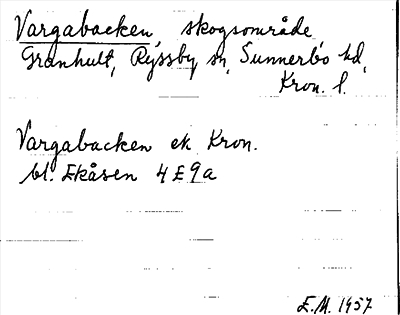 Vargabacken, skogsområde,
Granhult, Ryssby sn, Sunnerbo hd,
Kron. l.
Vargabacken ek Kron.
bl. Ekåsen 4E9a
E.M. 1957